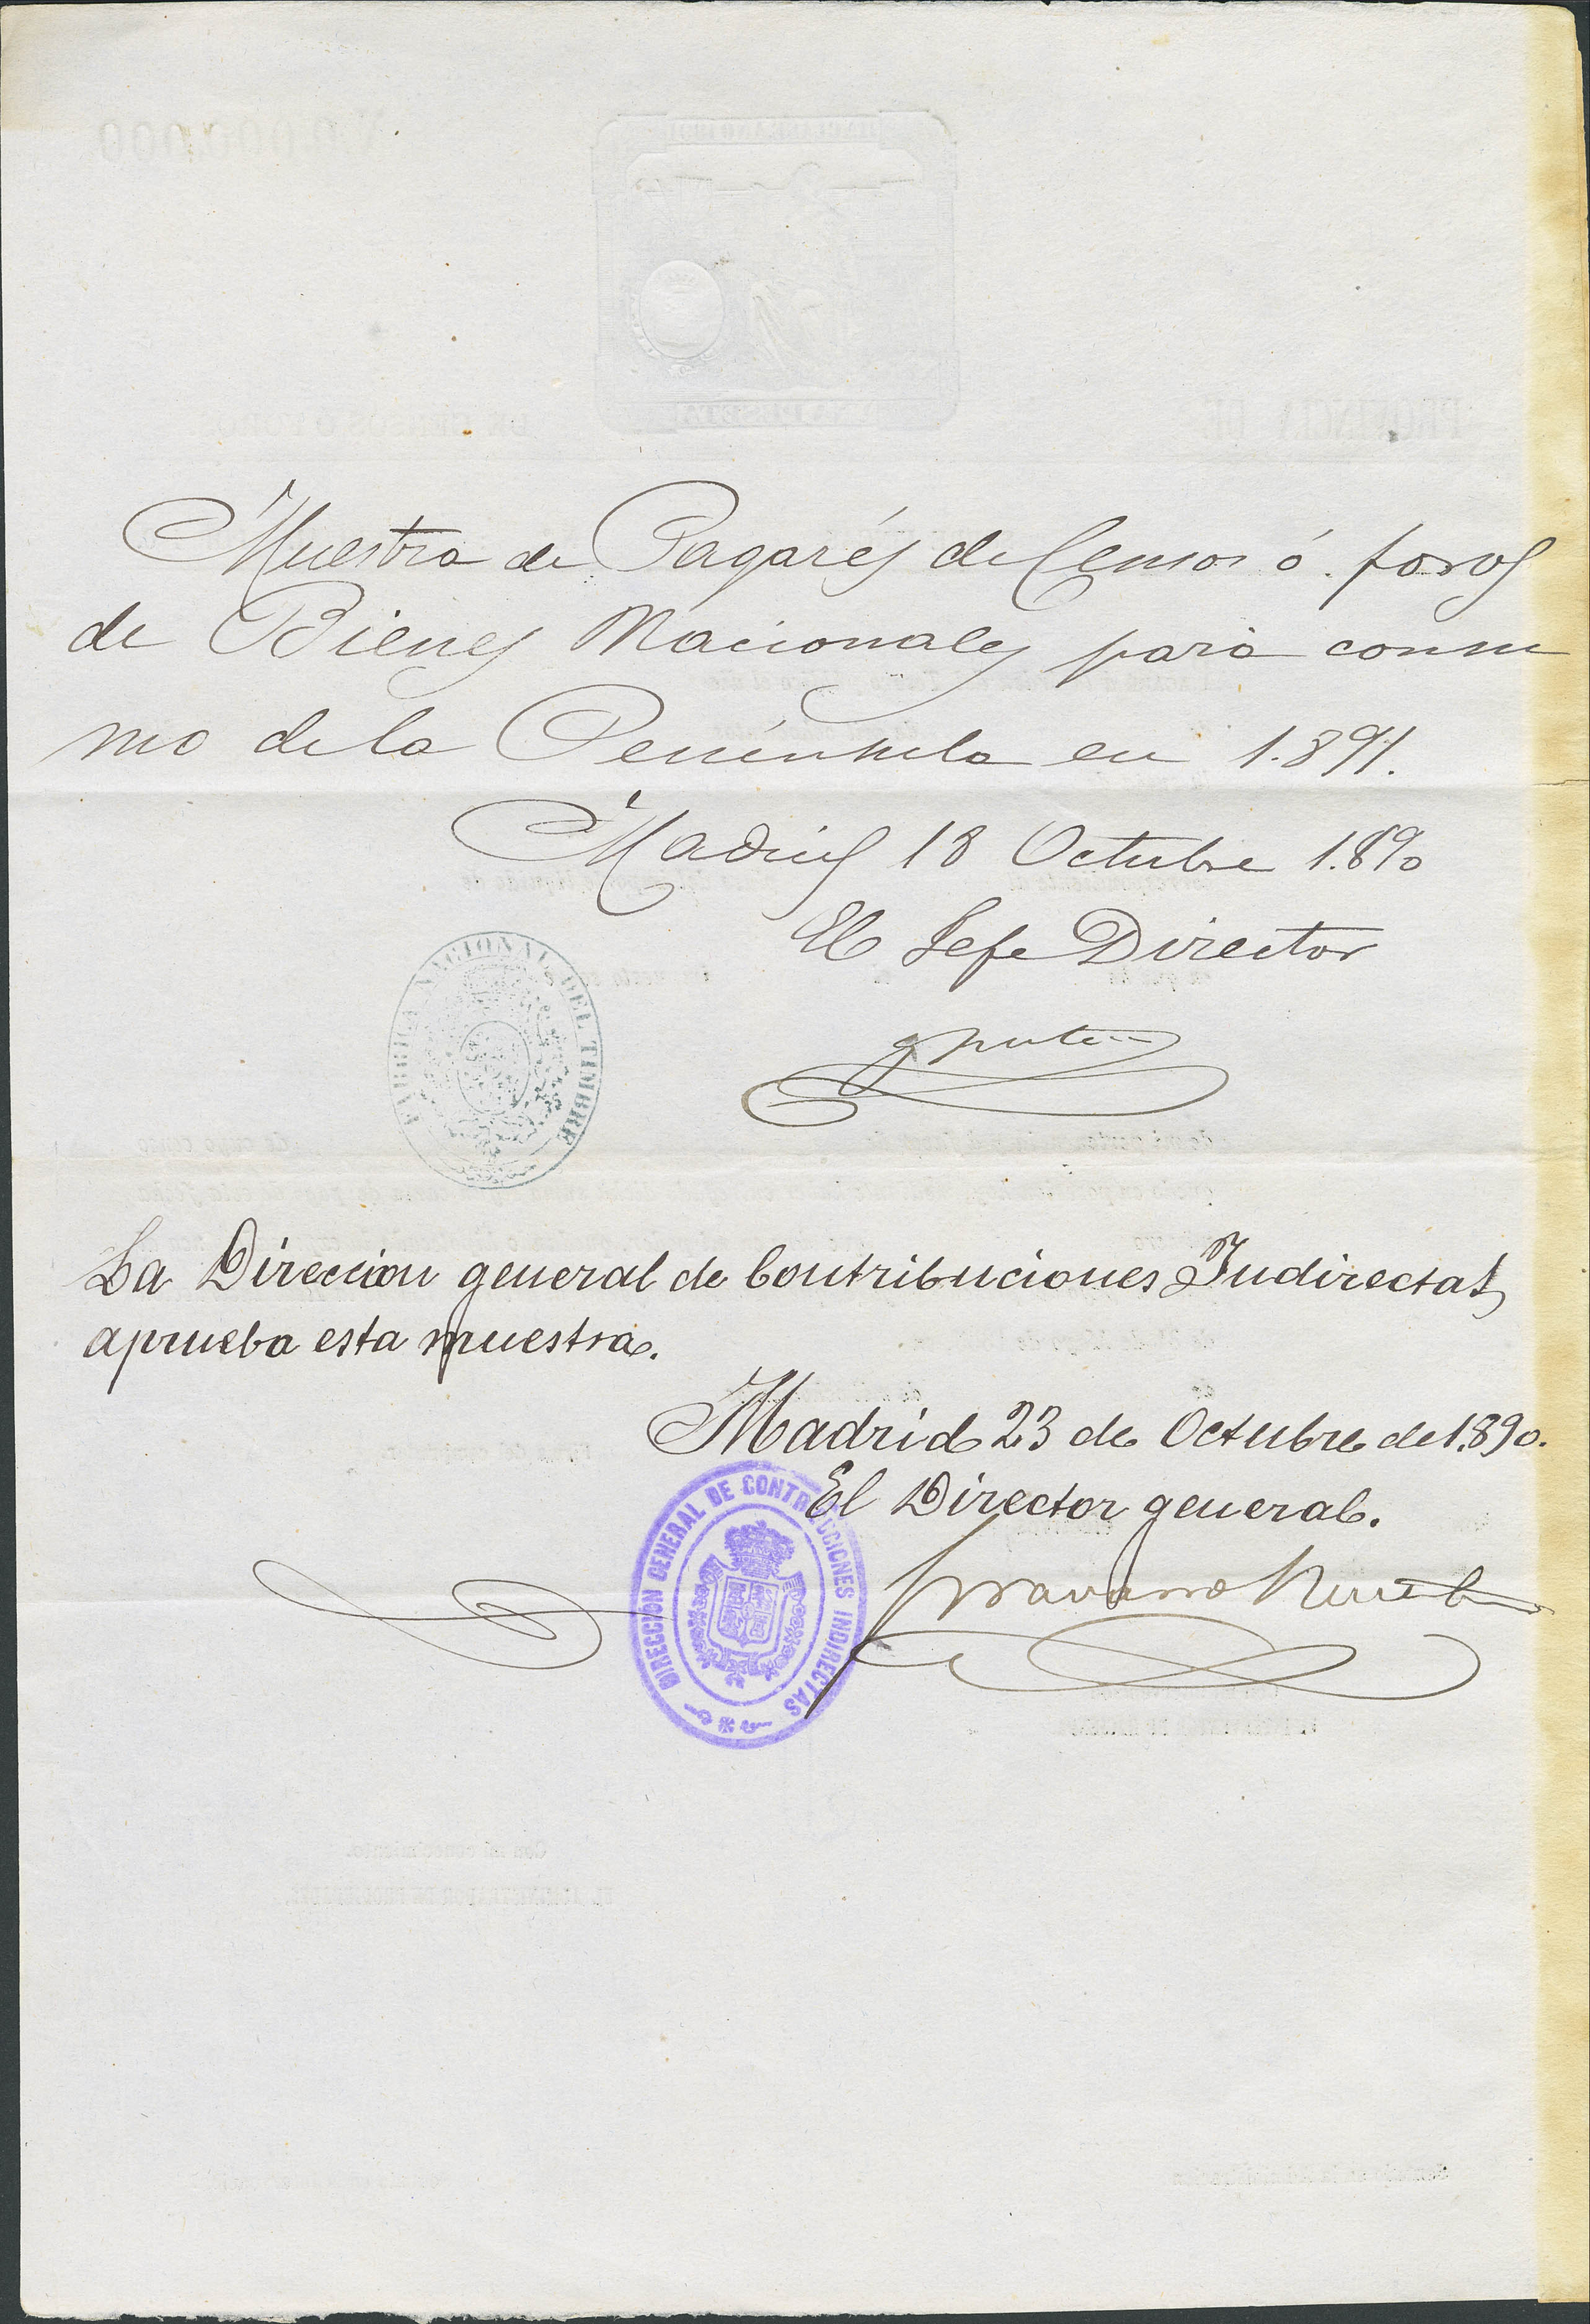 Muestra de Pagarés de Censos ó foros
de Bienes Nacionales para consu
mo de la Peninsula en 1.891.
Madrid 18 Octubre 1.890
El Jefe Director
FABRICA NACIONAL DEL TIMBRE
La Direccion general de Contribuciones Indirectas
aprueba esta muestra.
Madrid 23 de Octubre de 1.890.
El Director general.
DIRECCION GENERAL DE CONTRIBUCIONES INDIRECTAS
Navarro